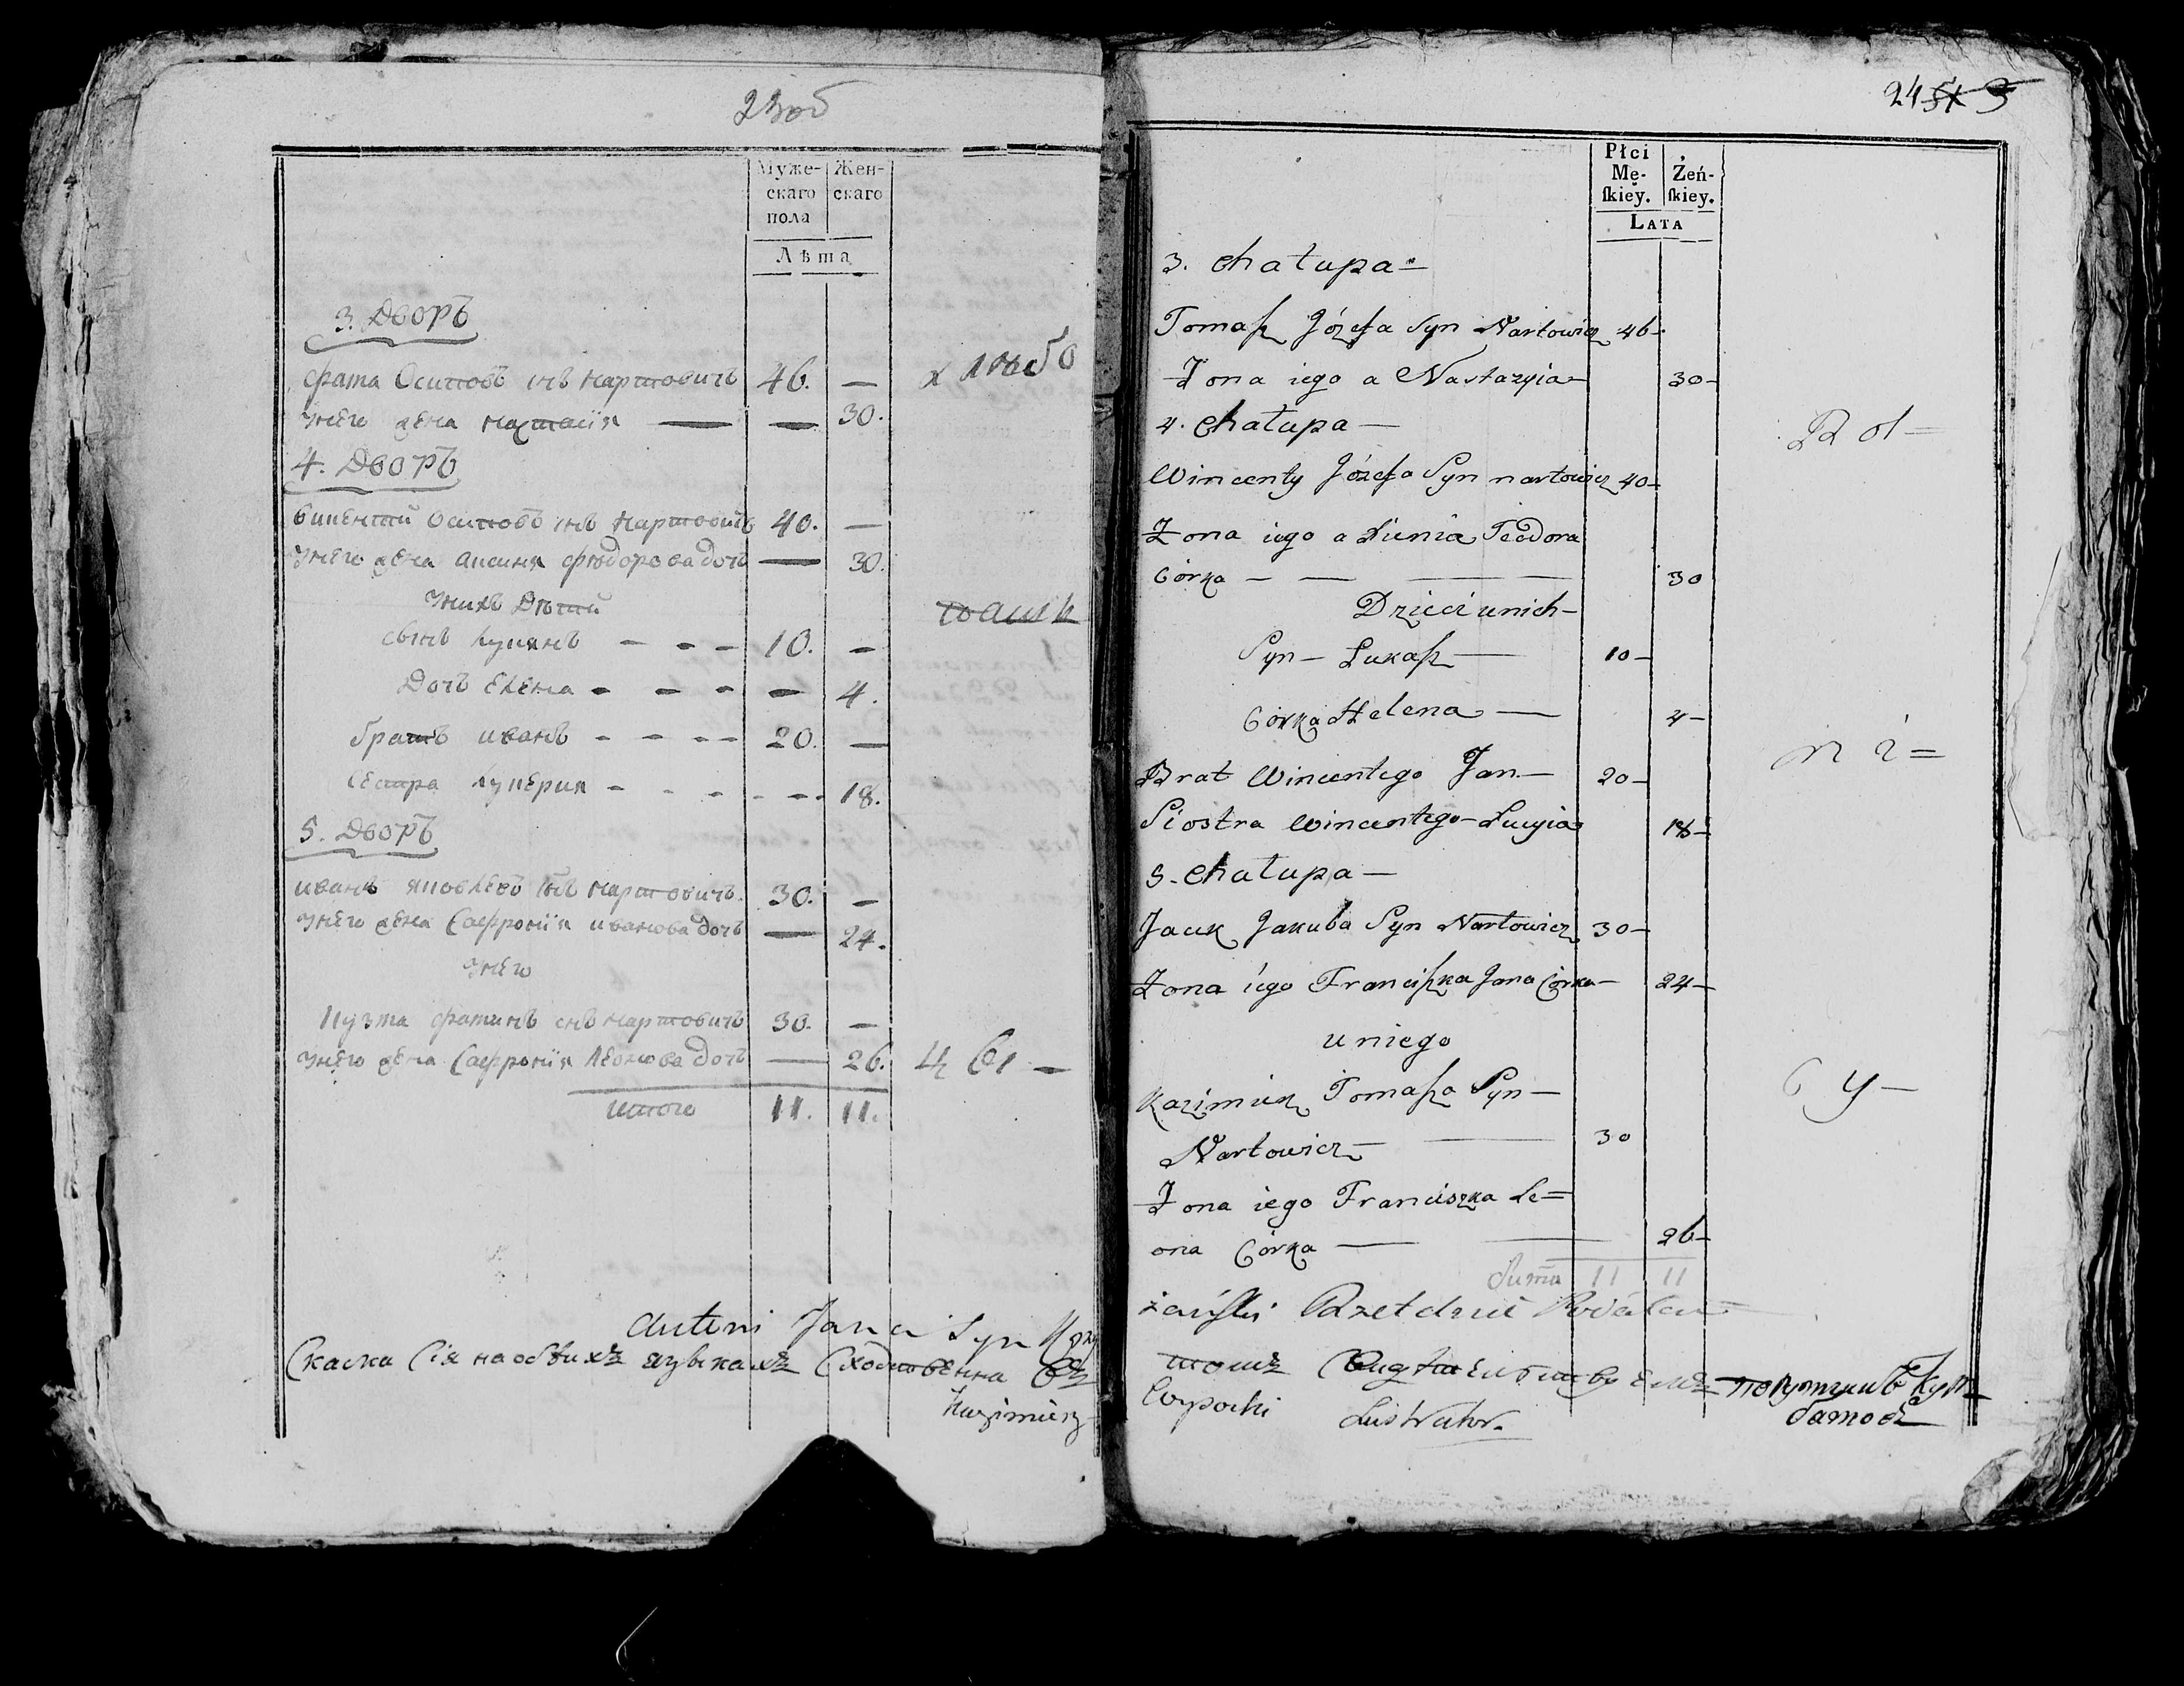 23об
Муже-
скаго
пола
Жен-
скаго
Лѣта
3. Дворъ
фама Осиповъ снъ нартовичъ 46. —
унего жена настасія — — 30.
4. Дворъ
викентий осиповъ снъ нартовичъ 40. —
унего жена аксиня фюдорова дочь — 30.
унихъ Дѣтий
сынъ лукянъ - - - 10. —
Дочь Елена - - - — 4.
братъ иванъ - - - - 20. —
сестра лукерия - - - - — 18.
5. Дворъ
иванъ яковлевъ снъ нартовичъ. 30. —
унего жена Сафронія иванова дочь — 24.
унего
кузма фаминъ снъ нартовичъ 30. —
унего жена Сафронія леонова дочь — 26.
итого 11. 11.
хлѣбо
паш
цы —
Antoni Jana Syn
Скаска Сія на обѣихъ языкахъ Сходственна Въ
Kazimierz
24 3
Płci
Mę-
ſkiey.
Żeń-
ſkiey.
LATA
3. Chałupa —
Tomaſz Józefa Syn Nartowicz 46 —
Żona iego a Nastazyia — 30 —
4. Chałupa —
Wincenty Józefa Syn nartowicz 40 —
Żona iego a Xienia Teodora
Córka — — — 30
Dzieci unich —
Syn — Łukaſz — 10 —
Córka Helena — 4 —
Brat Wincentego Jan — 20 —
Siostra Wincentego — Łucyia 18 —
5. Chałupa —
Jacek Jakuba Syn Nartowicz 30 —
Żona iego Franciſzka Jana Córka — 24 —
u niego
Kazimierz Tomaſza Syn —
Nartowicz — — 30
Żona iego Franciszka Le=
ona Córka — — 26 —
Suma 11 11
Rol —
ni =
cy —
томъ
Lustrator.